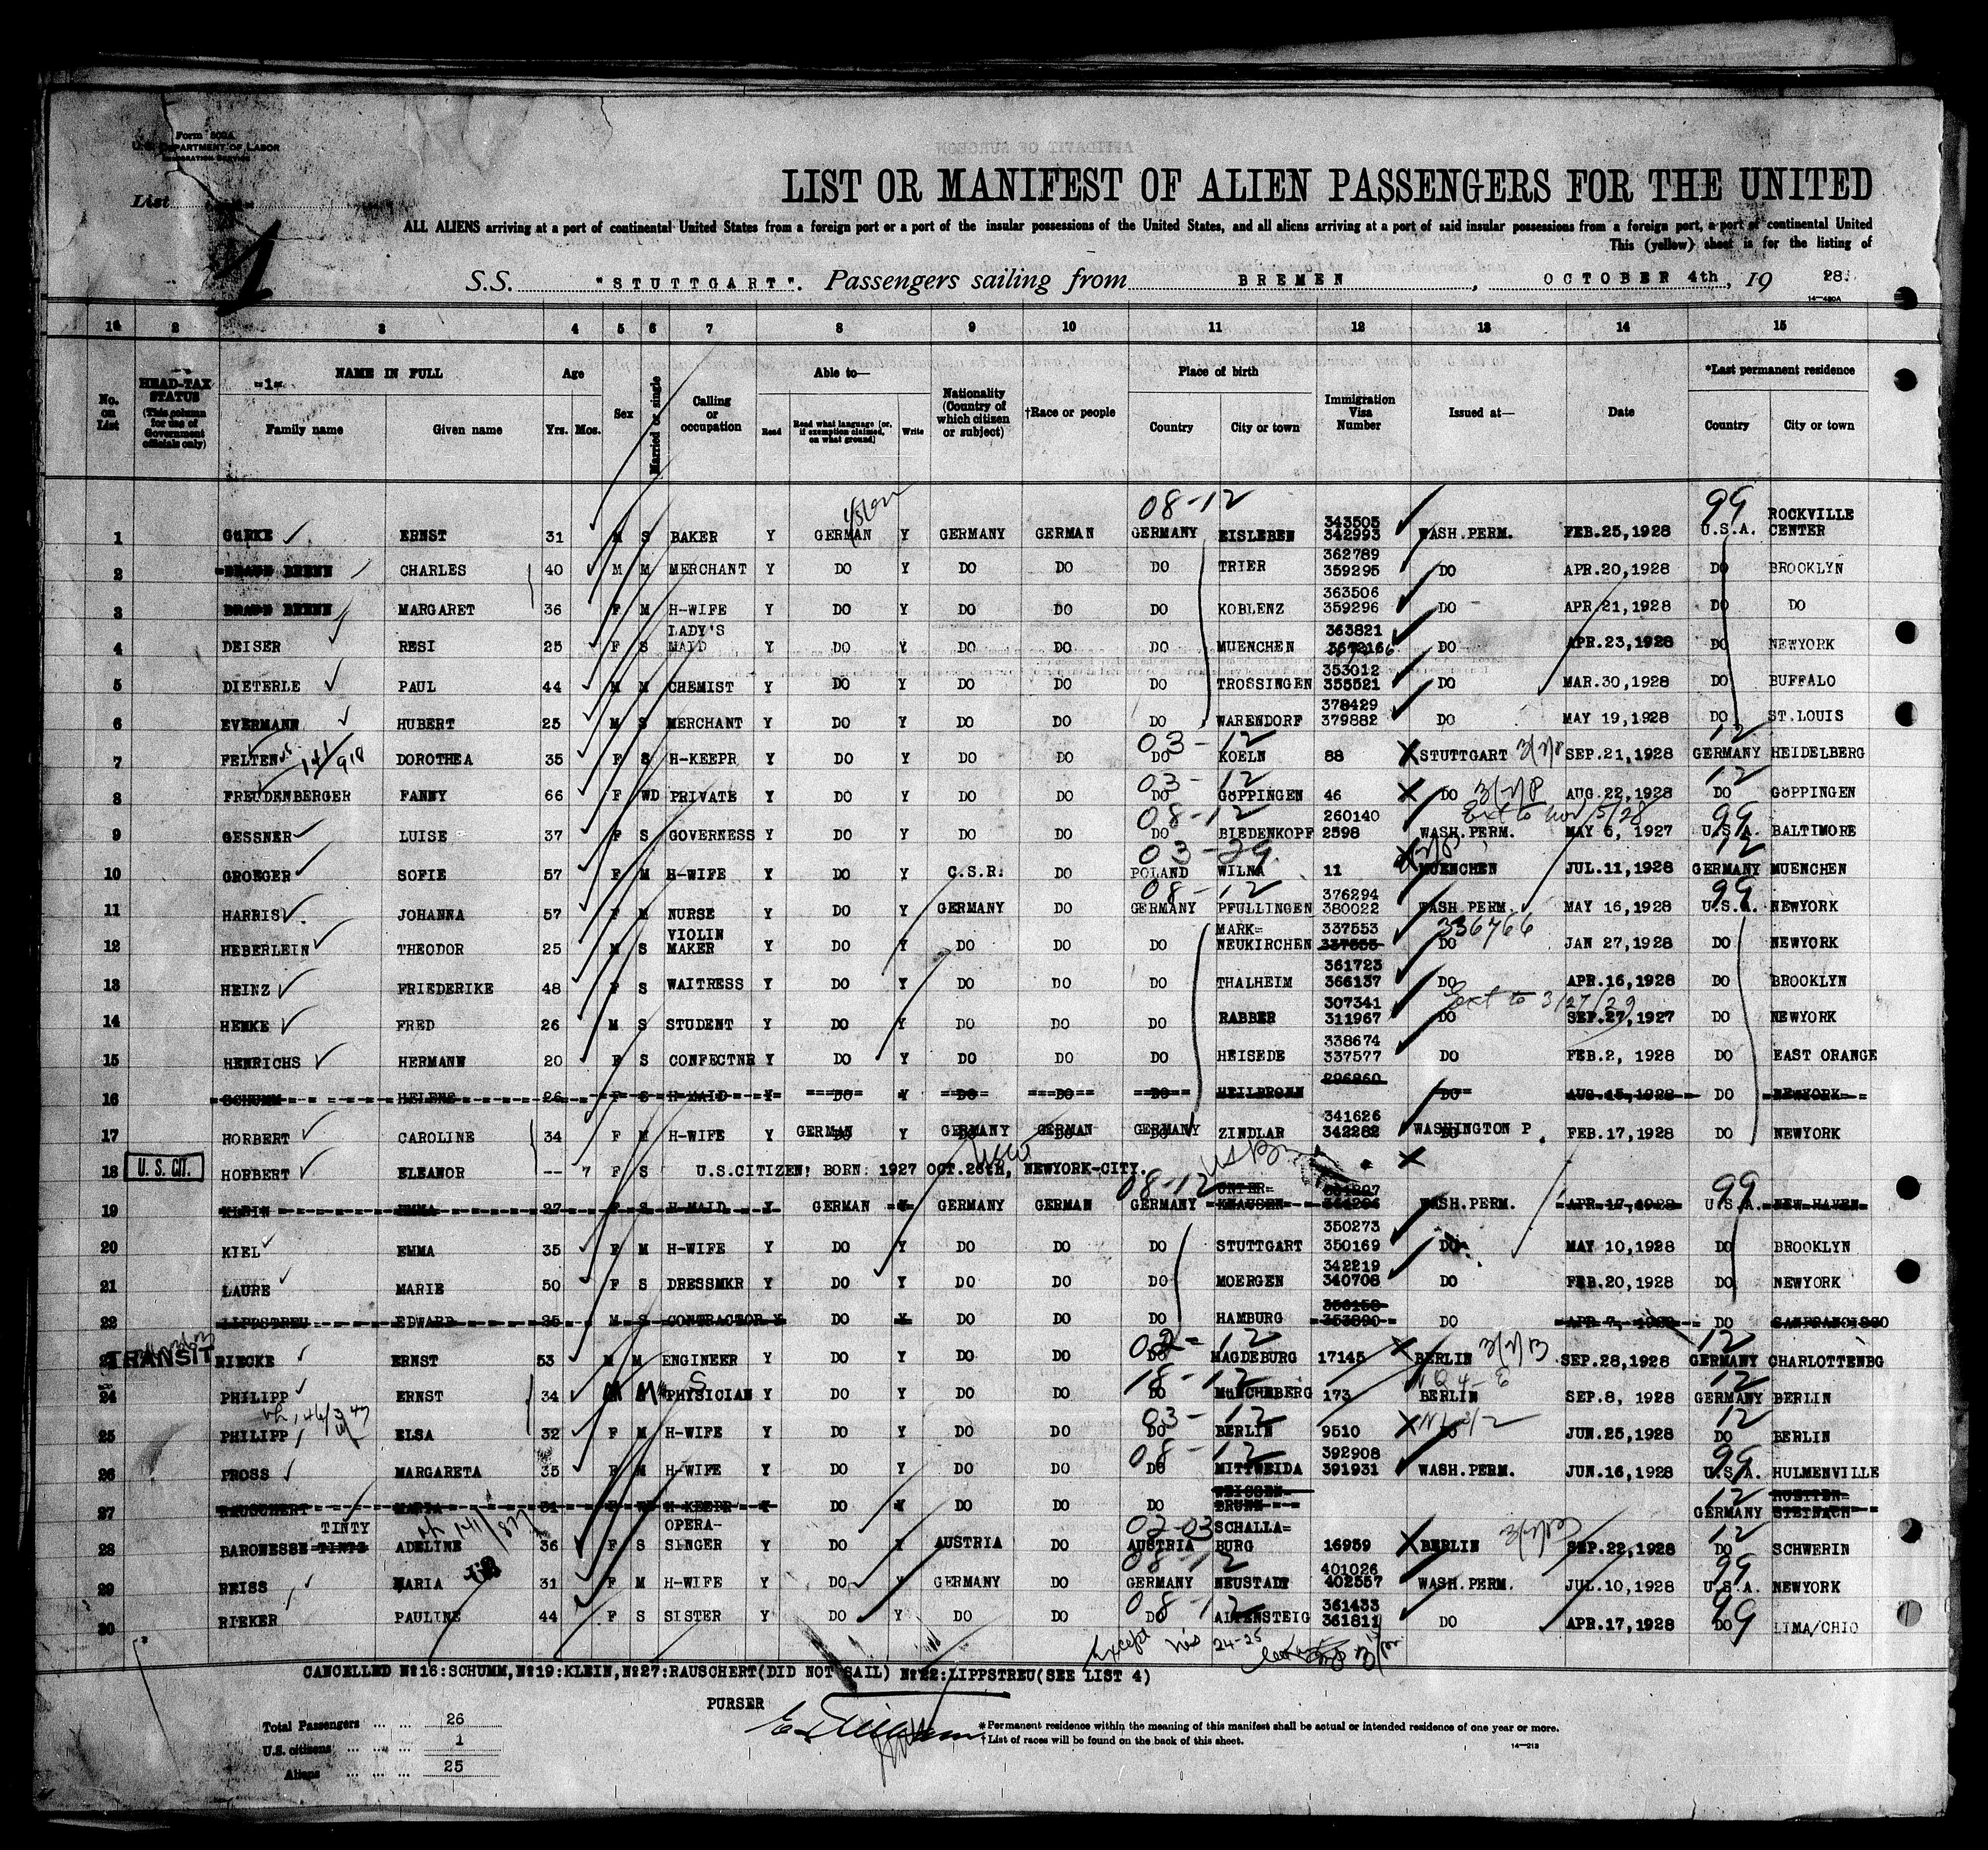 Form 500A
U. S. DEPARTMENT OF LABOR
IMMIGRATION SERVICE
List
1
LIST OR MANIFEST OF ALIEN PASSENGERS FOR THE UNITED
ALL ALIENS arriving at a port of continental United States from a foreign port or a port of the insular possessions of the United States, and all aliens arriving at a port of said insular possessions from a foreign port, a port of continental United
This (yellow) sheet is for the listing of
S.S. "STUTTGART". Passengers sailing from BREMEN, OCTOBER 4th, 19 28.
14—480A
1 2 3 4 5 6 7 8 9 10 11 12 13 14 15
No. on List
HEAD-TAX STATUS (This column for use of Government officials only)
=1= NAME IN FULL Family name Given name
Age Yrs. Mos.
Sex
Married or single
Calling or occupation
Able to— Read Read what language [or, if exemption claimed, on what ground] Write
Nationality (Country of which citizen or subject)
†Race or people
Place of birth Country City or town
Immigration Visa Number
Issued at—
Date
*Last permanent residence Country City or town
08-12 99
1 GüRKE ERNST 31 M S BAKER Y GERMAN Y GERMANY GERMAN GERMANY EISLEBEN 343505 342993 WASH.PERM. FEB.25,1928 U.S.A. ROCKVILLE CENTER
2 CHARLES 40 M M MERCHANT Y DO Y DO DO DO TRIER 362789 359295 DO APR.20,1928 DO BROOKLYN
3 MARGARET 36 F M H-WIFE Y DO Y DO DO DO KOBLENZ 363506 359296 DO APR.21,1928 DO DO
4 DEISER RESI 25 F S LADY'S MAID Y DO Y DO DO DO MUENCHEN 363821 DO APR.23,1928 DO NEWYORK
5 DIETERLE PAUL 44 M M CHEMIST Y DO Y DO DO DO TROSSINGEN 353012 355521 DO MAR.30,1928 DO BUFFALO
6 EVERMANN HUBERT 25 M S MERCHANT Y DO Y DO DO DO WARENDORF 378429 379882 DO MAY 19,1928 DO ST.LOUIS
03-12 12
7 FELTEN 141/918 DOROTHEA 35 F S H-KEEPR Y DO Y DO DO DO KOELN 88 STUTTGART SEP.21,1928 GERMANY HEIDELBERG
03-12 12
8 FREUDENBERGER FANNY 66 F WD PRIVATE Y DO Y DO DO DO GöPPINGEN 46 DO AUG.22,1928 DO GöPPINGEN
08-12 Ext to Nov/5/28 99
9 GESSNER LUISE 37 F S GOVERNESS Y DO Y DO DO DO BIEDENKOPF 260140 2598 WASH.PERM. MAY 6, 1927 U.S.A. BALTIMORE
03-29 12
10 GROEGER SOFIE 57 F M H-WIFE Y DO Y C.S.R. DO POLAND WILNA 11 MUENCHEN JUL.11,1928 GERMANY MUENCHEN
08-12 99
11 HARRIS JOHANNA 57 F M NURSE Y DO Y GERMANY DO GERMANY PFULLINGEN 376294 380022 WASH.PERM. MAY 16,1928 U.S.A. NEWYORK
12 HEBERLEIN THEODOR 25 M S VIOLIN MAKER Y DO Y DO DO DO MARK= NEUKIRCHEN 337553 337555 336766 DO JAN 27,1928 DO NEWYORK
13 HEINZ FRIEDERIKE 48 F S WAITRESS Y DO Y DO DO DO THALHEIM 361723 366137 DO APR.16,1928 DO BROOKLYN
Ext to 3/27/29
14 HENKE FRED 26 M S STUDENT Y DO Y DO DO DO RABBER 307341 311967 DO SEP.27,1927 DO NEWYORK
15 HENRICHS HERMANN 20 F S CONFECTNR Y DO Y DO DO DO HEISEDE 338674 337577 DO FEB.2, 1928 DO EAST ORANGE
16 SCHUMM HELENE 26 F S H-MAID Y DO Y DO DO DO HEILBRONN 296960 DO AUG.15,1928 DO NEWYORK
17 HORBERT CAROLINE 34 F M H-WIFE Y GERMAN Y GERMANY GERMAN GERMANY ZINDLAR 341626 342282 WASHINGTON P. FEB.17,1928 DO NEWYORK
18 U. S. CIT. HORBERT ELEANOR -- 7 F S U.S.CITIZEN! BORN: 1927 OCT.26TH, NEWYORK-CITY.
08-12 99
19 KLEIN EMMA 27 F S H-MAID Y GERMAN Y GERMANY GERMAN GERMANY UNTER= KNAUSEN WASH.PERM. APR.17,1928 U.S.A. NEW HAVEN
20 KIEL EMMA 35 F M H-WIFE Y DO Y DO DO DO STUTTGART 350273 350169 DO MAY 10,1928 DO BROOKLYN
21 LAURE MARIE 50 F S DRESSMKR Y DO Y DO DO DO MOERGEN 342219 340708 DO FEB.20,1928 DO NEWYORK
22 LIPPSTREU EDWARD 25 M S CONTRACTOR Y DO Y DO DO DO HAMBURG DO APR 7, DO SANFRANCISCO
02-12 12
TRANSIT RIECKE ERNST 53 M M ENGINEER Y DO Y DO DO DO MAGDEBURG 17145 BERLIN SEP.28,1928 GERMANY CHARLOTTENBG
18-12 12
24 PHILIPP ERNST 34 M M PHYSICIAN Y DO Y DO DO DO MüNCHEBERG 173 BERLIN SEP.8, 1928 GERMANY BERLIN
03-12 12
25 PHILIPP ELSA 32 F M H-WIFE Y DO Y DO DO DO BERLIN 9510 DO JUN.25,1928 DO BERLIN
08-12 99
26 PROSS MARGARETA 35 F M H-WIFE Y DO Y DO DO DO MITTWEIDA 392908 391931 WASH.PERM. JUN.16,1928 U.S.A. HULMENVILLE
12
27 RAUSCHERT MARIA 31 F WD H-KEEPR Y DO Y DO DO DO WEISSEN= BRUNN GERMANY HUETTEN= STEINACH
02-03 12
28 BARONESSE TINTZ TINTY ADELINE 141/877 36 F S OPERA- SINGER Y DO Y AUSTRIA DO AUSTRIA SCHALLA= BURG 16959 BERLIN SEP.22,1928 DO SCHWERIN
08-12 99
29 REISS MARIA 31 F M H-WIFE Y DO Y GERMANY DO GERMANY NEUSTADT 401026 402557 WASH.PERM. JUL.10,1928 U.S.A. NEWYORK
08-12 99
30 RIEKER PAULINE 44 F S SISTER Y DO Y DO DO DO ALTENSTEIG 361433 361811 DO APR.17,1928 DO LIMA/OHIO
Except nos 24-25
CANCELLED No16:SCHUMM,No19:KLEIN,No27:RAUSCHERT(DID NOT SAIL) No22:LIPPSTREU(SEE LIST 4)
PURSER
Total Passengers ... ... 26
U.S. citizens ... ... 1
Aliens ... ... ... 25
* Permanent residence within the meaning of this manifest shall be actual or intended residence of one year or more.
† List of races will be found on the back of this sheet.
14—213